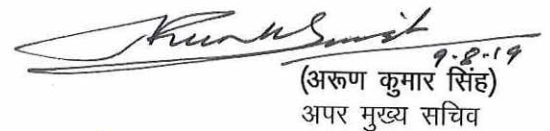 9-8-19
(अरूण कुमार सिंह)
अपर मुख्य सचिव